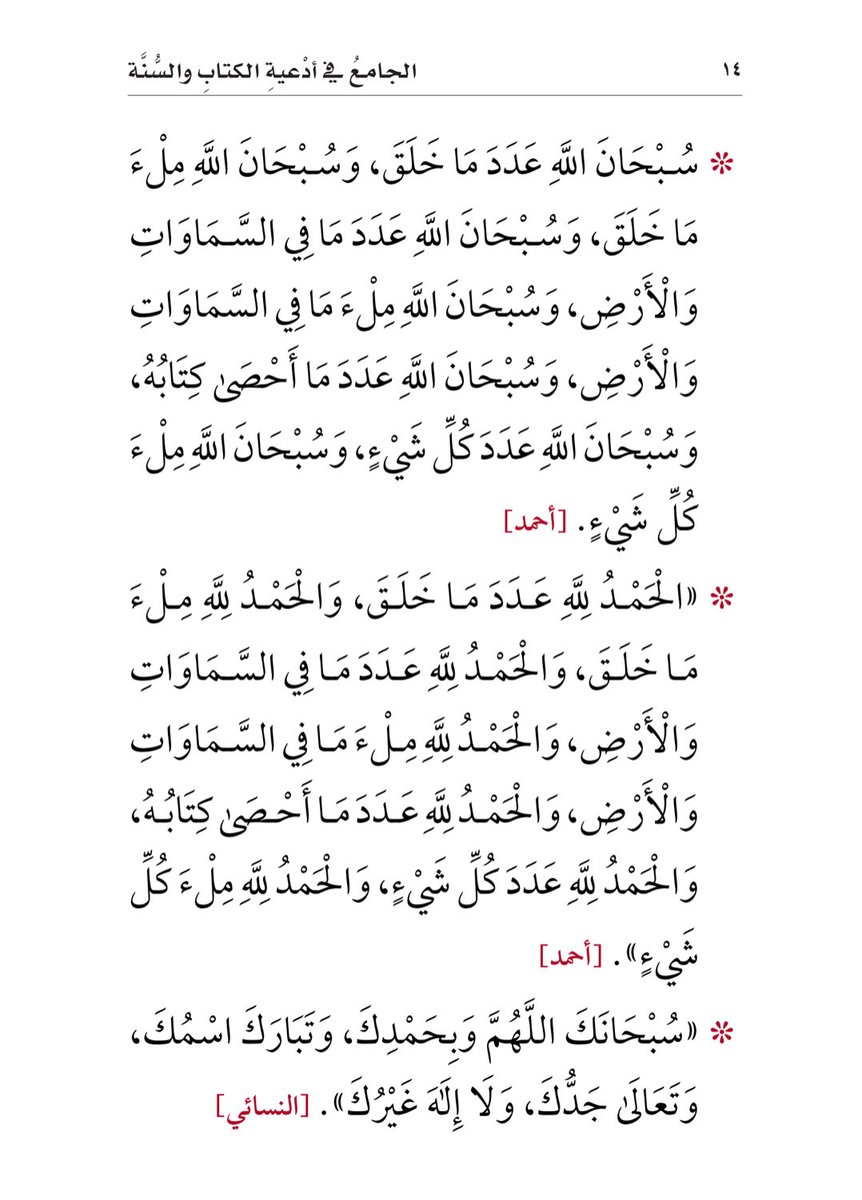 ١٤ الجامعُ في أدْعيةِ الكتابِ والسُّنَّة
* سُبْحَانَ اللَّهِ عَدَدَ مَا خَلَقَ، وَسُبْحَانَ اللَّهِ مِلْءَ
مَا خَلَقَ، وَسُبْحَانَ اللَّهِ عَدَدَ مَا فِي السَّمَاوَاتِ
وَالْأَرْضِ، وَسُبْحَانَ اللَّهِ مِلْءَ مَا فِي السَّمَاوَاتِ
وَالْأَرْضِ، وَسُبْحَانَ اللَّهِ عَدَدَ مَا أَحْصَىٰ كِتَابُهُ،
وَسُبْحَانَ اللَّهِ عَدَدَ كُلِّ شَيْءٍ، وَسُبْحَانَ اللَّهِ مِلْءَ
كُلِّ شَيْءٍ. [أحمد]
* «الْحَمْدُ لِلَّهِ عَدَدَ مَا خَلَقَ، وَالْحَمْدُ لِلَّهِ مِلْءَ
مَا خَلَقَ، وَالْحَمْدُ لِلَّهِ عَدَدَ مَا فِي السَّمَاوَاتِ
وَالْأَرْضِ، وَالْحَمْدُ لِلَّهِ مِلْءَ مَا فِي السَّمَاوَاتِ
وَالْأَرْضِ، وَالْحَمْدُ لِلَّهِ عَدَدَ مَا أَحْصَىٰ كِتَابُهُ،
وَالْحَمْدُ لِلَّهِ عَدَدَ كُلِّ شَيْءٍ، وَالْحَمْدُ لِلَّهِ مِلْءَ كُلِّ
شَيْءٍ». [أحمد]
* «سُبْحَانَكَ اللَّهُمَّ وَبِحَمْدِكَ، وَتَبَارَكَ اسْمُكَ،
وَتَعَالَىٰ جَدُّكَ، وَلَا إِلَٰهَ غَيْرُكَ». [النسائي]